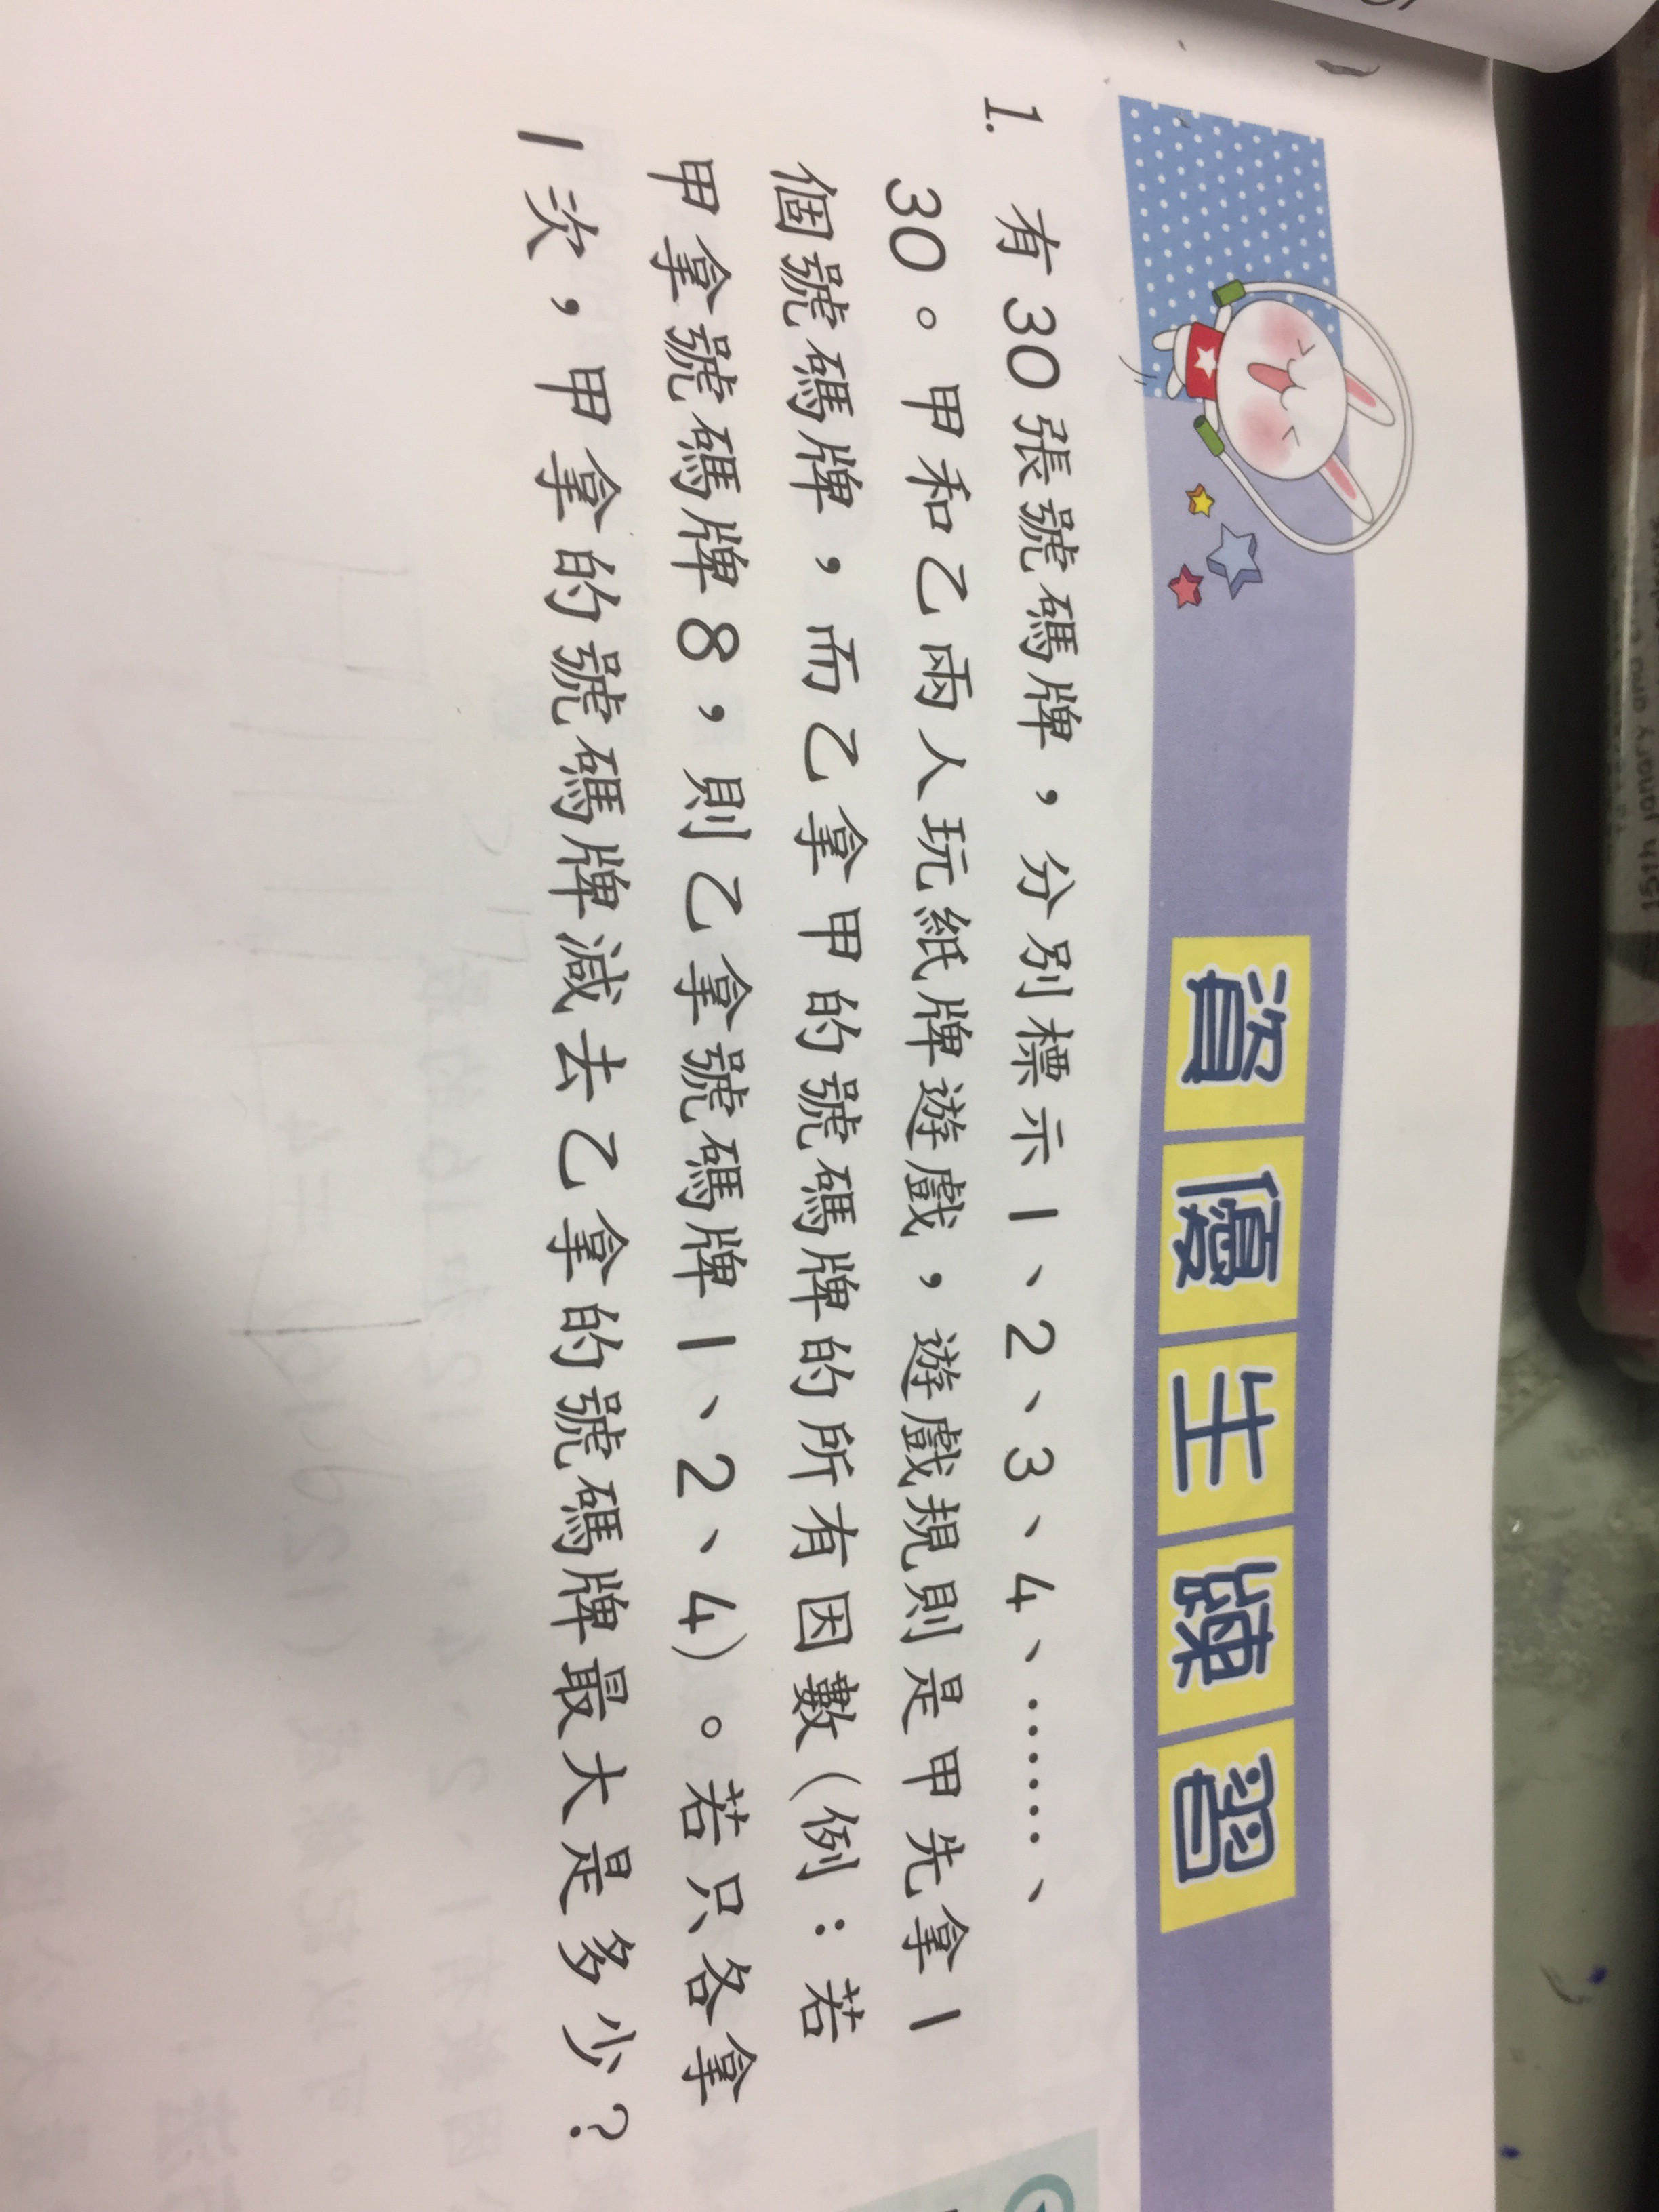 資優生練習
1. 有30張號碼牌，分別標示1、2、3、4、……、
30。甲和乙兩人玩紙牌遊戲，遊戲規則是甲先拿1
個號碼牌，而乙拿甲的號碼牌的所有因數(例：若
甲拿號碼牌8，則乙拿號碼牌1、2、4)。若只各拿
1次，甲拿的號碼牌減去乙拿的號碼牌最大是多少？